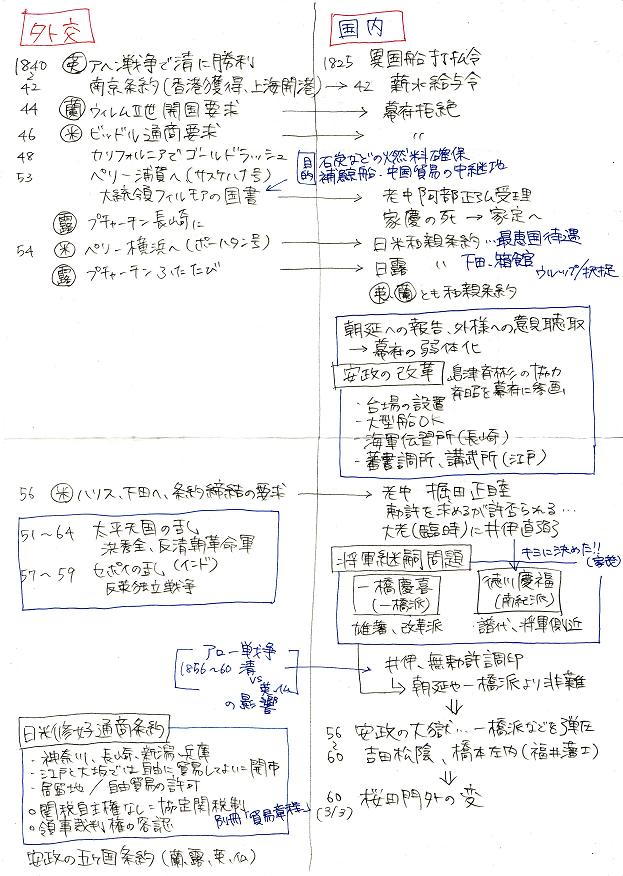 外交
1840
〜
42
英 アヘン戦争で清に勝利
南京条約(香港獲得、上海開港)→
44 蘭 ウィレムⅡ世 開国要求 →
46 米 ビッドル通商要求 →
48 カリフォルニアでゴールドラッシュ
53 ペリー浦賀へ(サスケハナ号)
大統領フィルモアの国書 →
露 プチャーチン長崎に
54 米 ペリー横浜へ(ポーハタン号) →
露 プチャーチンふたたび →
56 米 ハリス、下田へ、条約締結の要求 →
51〜64 太平天国の乱
洪秀全、反清朝革命軍
57〜59 セポイの乱(インド)
反英独立戦争
アロー戦争
1856〜60 清
vs
英・仏
の影響
日米修好通商条約
・神奈川、長崎、新潟、兵庫
・江戸と大坂では自由に貿易してよい=開市
・居留地/自由貿易の許可
○関税自主権なし=協定関税制
別冊「貿易章程」
○領事裁判権の容認
安政の五ヶ国条約(蘭、露、英、仏)
国内
1825 異国船打払令
42 薪水給与令
幕府拒絶
〃
目的 石炭などの燃料確保
補鯨船・中国貿易の中継地
老中阿部正弘受理
家慶の死→家定へ
日米和親条約…最恵国待遇
下田、箱館
日露 〃 ウルップ/択捉
英 蘭 とも和親条約
朝廷への報告、外様への意見聴取
→幕府の弱体化
安政の改革 島津斉彬の協力
斉昭を幕府に参画
・台場の設置
・大型船OK
・海軍伝習所(長崎)
・蕃書調所、講武所(江戸)
老中 堀田正睦
勅許を求めるが許否られる…
大老(臨時)に井伊直弼
将軍継嗣問題
キミに決めた!!
(家茂)
一橋慶喜
(一橋派)
徳川慶福
(南紀派)
雄藩、改革派
譜代、将軍側近
井伊、無勅許調印
↳朝廷や一橋派より非難
⇓
56
〜
60
安政の大獄…一橋派などを弾圧
吉田松陰、橋本左内(福井藩士)
⇓
60
(3/3)
桜田門外の変